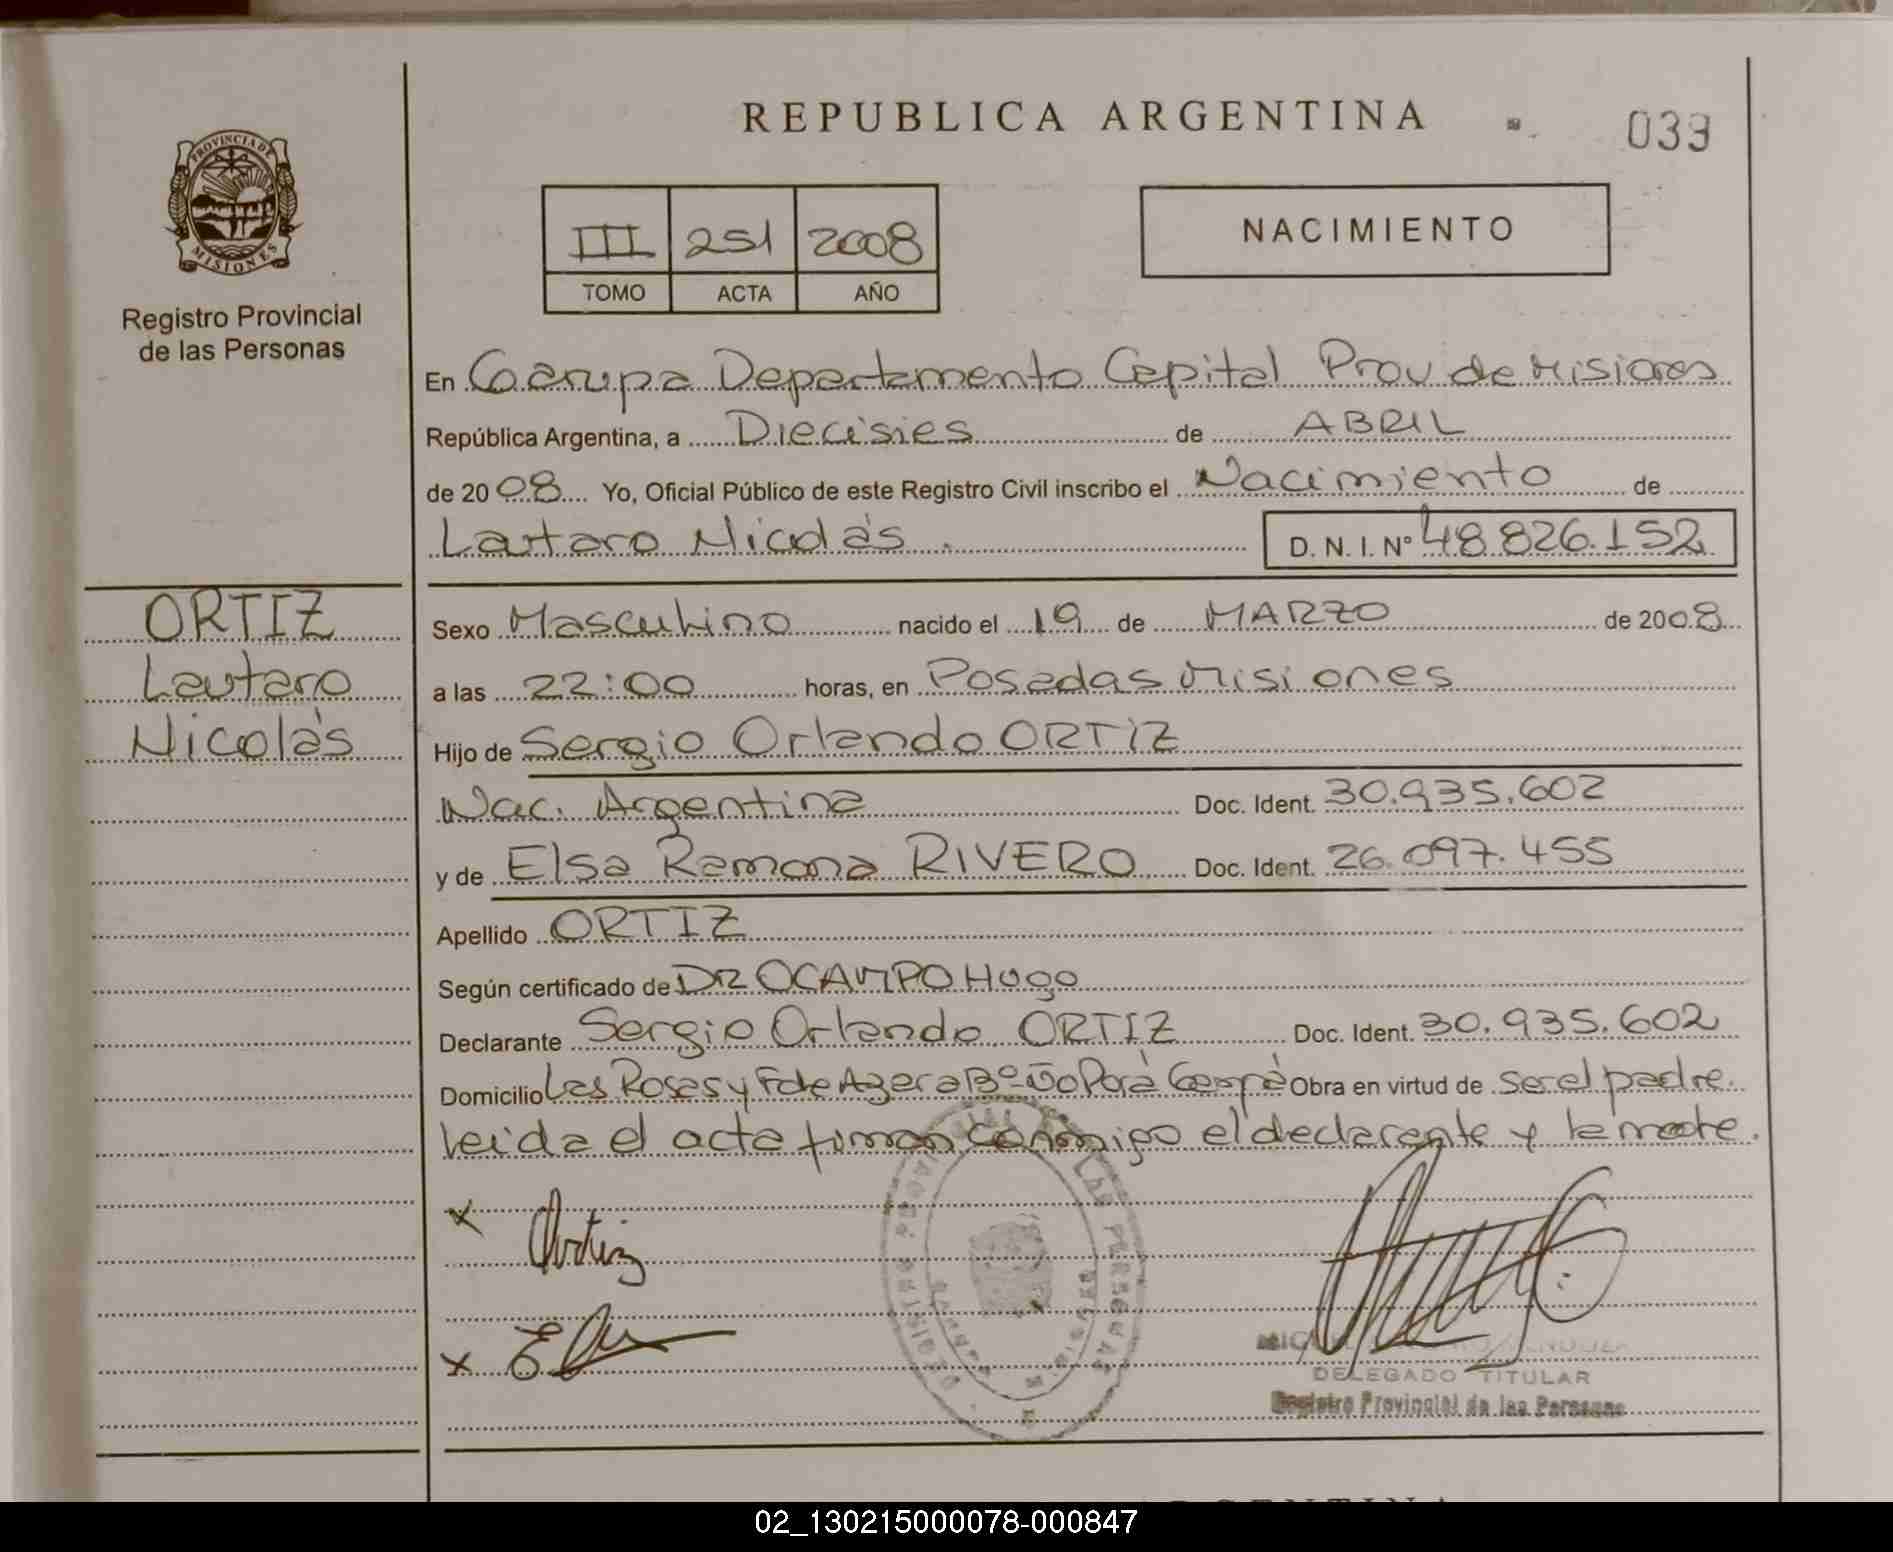 REPUBLICA ARGENTINA
039
PROVINCIA DE
MISIONES
Registro Provincial
de las Personas
III 251 2008
TOMO ACTA AÑO
NACIMIENTO
En Garupa Departamento Capital Prov de Misiones
República Argentina, a Diecisies de ABRIL
de 2008 Yo, Oficial Público de este Registro Civil inscribo el Nacimiento de
Lautaro Nicolás. D. N. I. Nº 48.826.152
ORTIZ
Lautaro
Nicolás
Sexo Masculino nacido el 19 de MARZO de 2008
a las 22:00 horas, en Posadas Misiones
Hijo de Sergio Orlando ORTIZ
Nac. Argentina Doc. Ident. 30.935.602
y de Elsa Ramona RIVERO Doc. Ident. 26.097.455
Apellido ORTIZ
Según certificado de DR OCAMPO Hugo
Declarante Sergio Orlando ORTIZ Doc. Ident. 30.935.602
Domicilio Las Rosas y F de Azara Bº Ñu Porá Garupá Obra en virtud de ser el padre.
leida el acta firman conmigo el declarante y la madre.
x Ortiz
x
DELEGADO TITULAR
Registro Provincial de las Personas
02_130215000078-000847